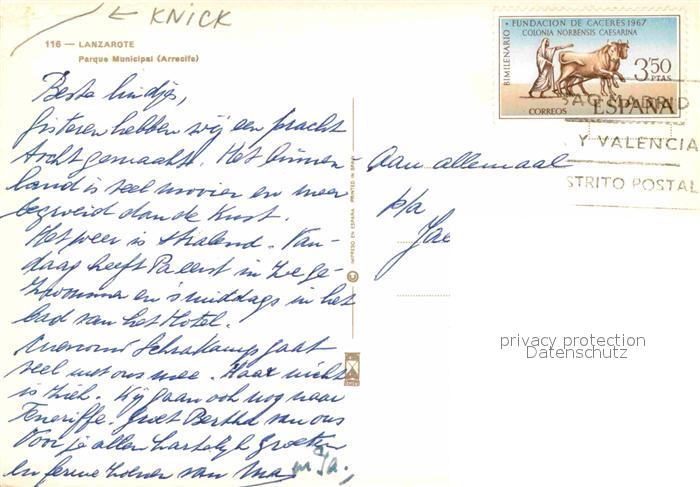 ← KNICK
116 — LANZAROTE
Parque Municipal (Arrecife)
BIMILENARIO • FUNDACION DE CACERES 1967
COLONIA NORBENSIS CAESARINA
3'50
PTAS
CORREOS ESPAÑA
MADRID
Y VALENCIA
STRITO POSTAL
Beste kindjes,
Gisteren hebben wij een pracht
tocht gemaakt. Het binnen-
land is veel mooier en meer
begroeid dan de Kust.
Het weer is stralend. Van-
daag heeft Pa eerst in zee ge-
zwommen en 's middags in het
bad van het Hotel.
Schrakamp gaat
veel met ons mee. Haar nicht
is ziek. Wij gaan ook nog naar
Teneriffe. Groet Bertha van ons
Voor je allen hartelijk groeten
en ferme zoenen van Ma
en Pa.
Aan allemaal
p/a
Jac
IMPRESO EN ESPAÑA PRINTED IN SPAIN
privacy protection
Datenschutz